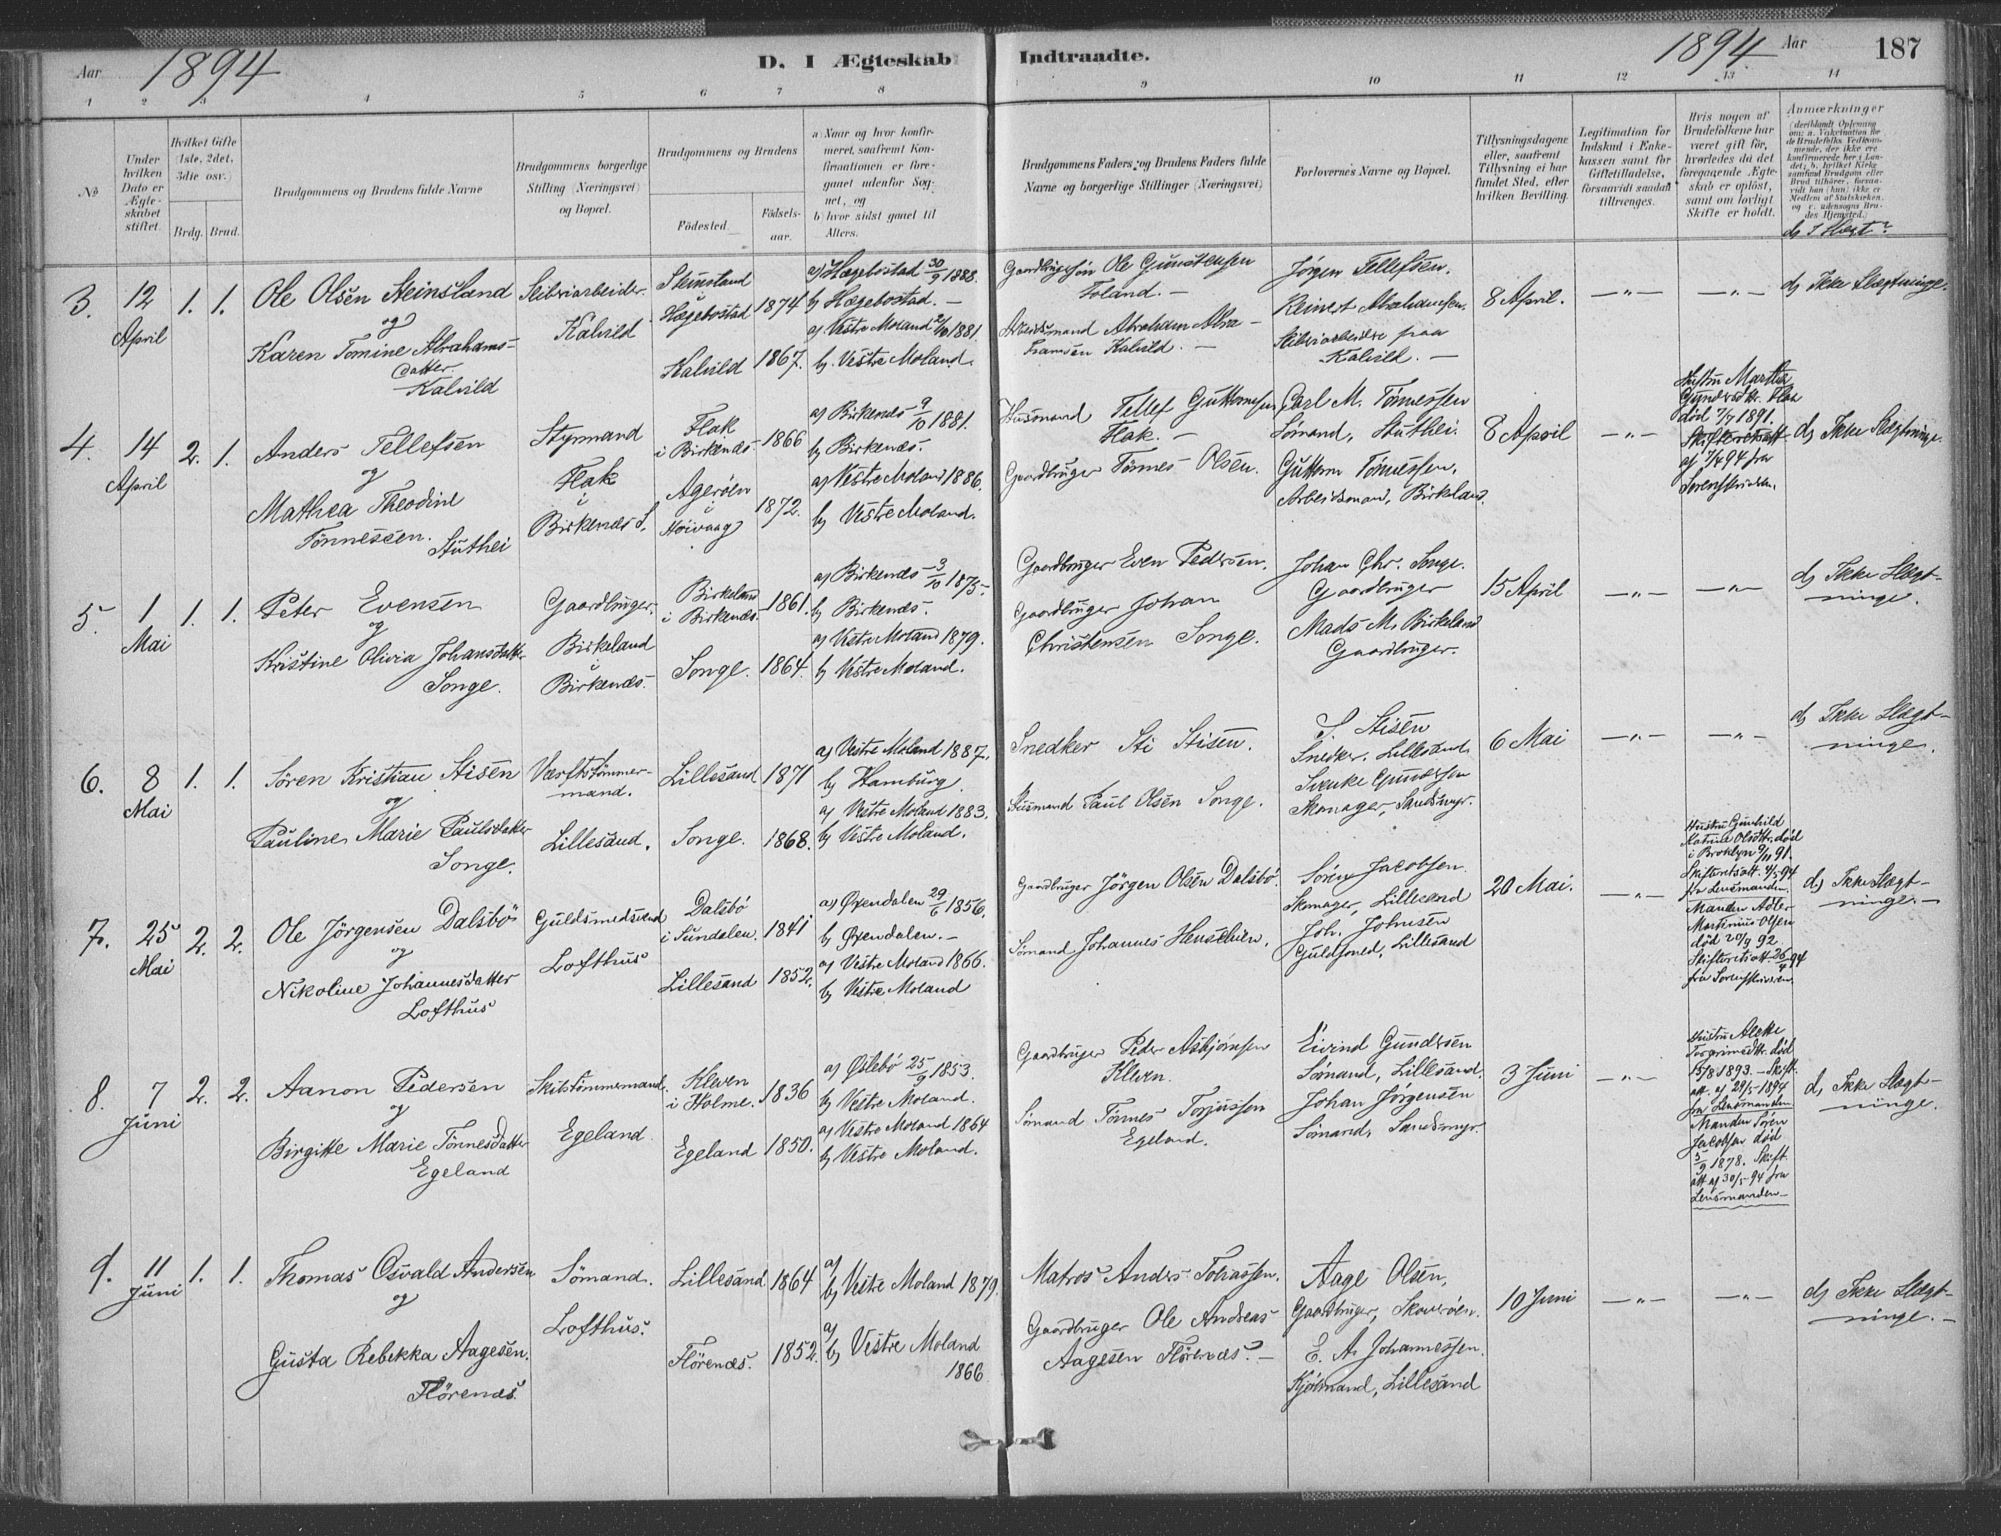 Aar 1894 D. I Ægteskab Indtraadte. 1894 Aar 187
1 2 3 4 5 6 7 8 9 10 11 12 13 14
No
Under hvilken Dato er Ægteskabet stiftet.
Hvilket Gifte (1ste, 2det, 3die osv.)
Brdg. Brud.
Brudgommens og Brudens fulde Navne
Brudgommens borgerlige Stilling (Næringsvei) og Bopæl.
Brudgommens og Brudens
Födested. Födsels-aar.
a) Naar og hvor konfir-
meret, saafremt Kon-
firmationen er fore-
gaaet udenfor Sog-
net, og
b) hvor sidst gaaet til
Alters.
Brudgommens Faders og Brudens Faders fulde
Navne og borgerlige Stillinger (Næringsvei)
Forlovernes Navne og Bopæl.
Tillysningsdagene
eller, saafremt
Tillysning ei har
fundet Sted, efter
hvilken Bevilling.
Legitimation for
Indskud i Enke-
kassen samt for
Giftetilladelse,
forsaavidt saadan
tiltrænges.
Hvis nogen af
Brudefolkene har
været gift før,
hvorledes da det
foregaaende Ægte-
skab er opløst,
samt om lovligt
Skifte er holdt.
Anmærkninger
d) I Slægt?
3. 12 April 1. 1.
Ole Olsen Steinsland
og
Karen Tomine Abrahams-
datter
Kalvild
Stibriarbeider.
Kalvild
Steinsland
i
Hægebostad 1874
Kalvild 1867.
a) Hægebostad 30/9 1888.
b) Hægebostad. —
a) Vestre Moland 2/10 1881.
b) Vestre Moland.
Gaardbrugersøn Ole Gunstensen
Foland. —
Arbeidsmand Abraham Abra-
hamsen Kalvild. —
Jørgen Tellefsen.
Reinert Abrahamsen.
Stibriarbeidere paa
Kalvild. —
8 April. —"— —"—
d) Ikke Slægtninge.
4. 14 April 2. 1.
Anders Tellefsen
og
Mathea Theodine
Tönnessen. Stuthei
Styrmand
Flak
i
Birkenæs S.
Flak
i Birkenæs 1866
Agerøen
i
Høivaag 1872.
a) Birkenæs 9/10 1881.
b) Birkenæs.
a) Vestre Moland 1886.
b) Vestre Moland.
Husmand Tellef Guttormsen
Flak. —
Gaardbruger Tönnes Olsen.
Carl M. Tönnessen
Sömand, Stuthei.
Guttorm Tönnessen,
Arbeidsmand, Birkeland.
8 April —"—
Hustru Marthe
Gundersdtr. Flak
død 7/7 1891.
Skifteretsatt.
af 7/4 94 fra
Sorenskriveren.
d) Ikke Slægtninge.
5. 1 Mai 1. 1.
Peter Evensen
og
Kristine Olivia Johansdatter
Songe.
Gaardbruger.
Birkeland
i
Birkenæs.
Birkeland
i Birkenæs. 1861.
Songe. 1864.
a) Birkenæs 3/10 1875.
b) Birkenæs.
a) Vestre Moland 1879.
b) Vestre Moland.
Gaardbruger Even Pedersen.
Gaardbruger Johan
Christensen Songe.
Johan Chr. Songe.
Gaardbruger
Mads M. Birkeland
Gaardbruger.
15 April —"— —"—
d) Ikke Slægt-
ninge.
6. 8 Mai 1. 1.
Sören Kristian Stisen
og
Pauline Marie Paulsdatter
Songe.
Værftstömmer-
mand.
Lillesand.
Lillesand 1871
Songe. 1868.
a) Vestre Moland 1887.
b) Hamburg.
a) Vestre Moland 1883.
b) Vestre Moland.
Snedker Sti Stisen.
Husmand Paul Olsen Songe.
S. Stisen
Snedker. Lillesand
Svenke Gundersen
Skomager, Sandsmyr.
6 Mai —"— —"—
d) Ikke Slægt-
ninge.
7. 25 Mai 2. 2.
Ole Jörgensen Dalsbö
og
Nikoline Johannesdatter
Lofthus
Guldsmedsvend
Lofthus
Dalsbö
i Sundalen. 1841
Lillesand 1852.
a) Øxendalen 29/6 1856.
b) Øxendalen. —
a) Vestre Moland 1866.
b) Vestre Moland
Gaardbruger Jörgen Olsen Dalsbö.
Sömand Johannes Henschien.
Sören Jacobsen
Skomager, Lillesand
Joh. Johnsen
Guldsmed, Lillesand
20 Mai. —"—
Hustru Gunhild
Katrine Olsdtr. død
i Broklyn 9/11 91.
Skifteretsatt. 4/5 94
fra Lensmanden.
Manden Adler
Martinius Olsen
død 20/9 92
Skifteretsatt. 26/4 94
fra Sorenskriveren.
d) Ikke Slægt-
ninge. —
8. 7 Juni 2. 2.
Aanon Pedersen
og
Birgitte Marie Tönnesdatter
Egeland
Skibstömmermand
Egeland.
Kleven
i Holme. 1836
Egeland 1850.
a) Øslebö 25/9 1853.
b) Vestre Moland.
a) Vestre Moland 1864
b) Vestre Moland.
Gaardbruger Peder Asbjörnsen
Kleven.
Sömand Tönnes Torjussen
Egeland.
Eivind Gundersen
Sömand, Lillesand.
Johan Jörgensen
Sömand, Sandsmyr.
3 Juni —"—
Hustru Aleke
Torgrimsdtr. død
15/8 1893. – Skift.
att. af 29/5 1894
fra Lensmanden
Manden Sören
Jacobsen død
5/9 1878. Skift.
att. af 30/5 94 fra
Lensmanden —
d) Ikke Slægt-
ninge.
9. 11 Juni 1. 1.
Thomas Osvald Andersen
og
Gusta Rebekka Aagesen.
Flörenæs.
Sömand.
Lofthus.
Lillesand 1864
Flörenæs. 1852.
a)
b) Vestre Moland 1879.
a)
b) Vestre Moland
1866
Matros Anders Tobiassen.
Gaardbruger Ole Andreas
Aagesen Flörenæs. —
Aage Olsen,
Gaardbruger, Skauerøen.
E. A. Johannessen.
Kjöbmand, Lillesand
10 Juni —"— —"—
d) Ikke Slægt-
ninge. —